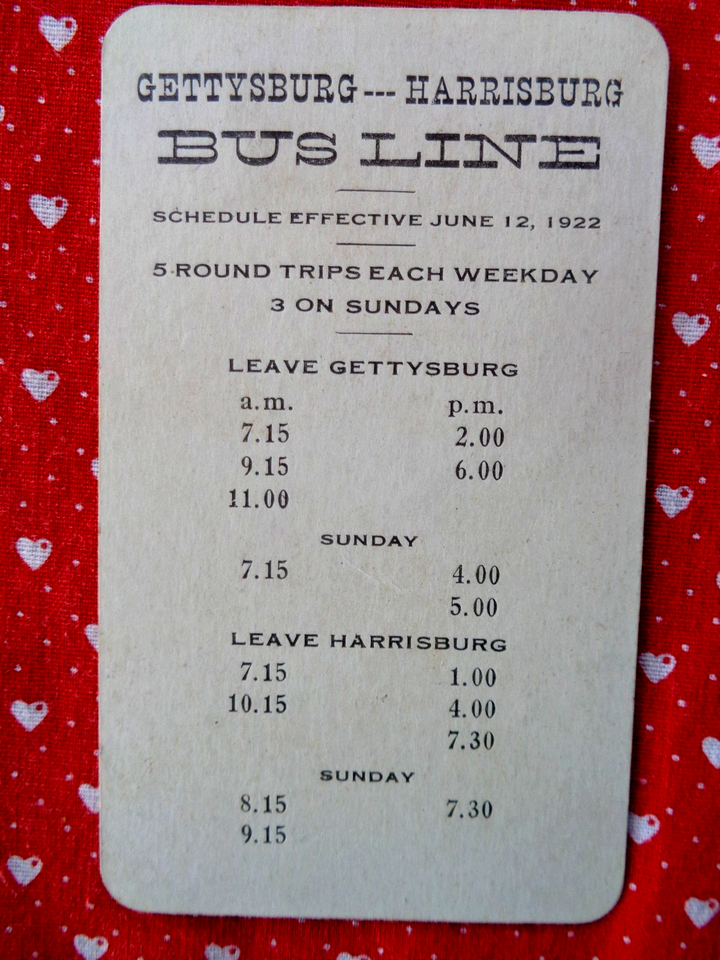 GETTYSBURG---HARRISBURG
BUS LINE
SCHEDULE EFFECTIVE JUNE 12, 1922
5 ROUND TRIPS EACH WEEKDAY
3 ON SUNDAYS
LEAVE GETTYSBURG
a.m. p.m.
7.15 2.00
9.15 6.00
11.00
SUNDAY
7.15 4.00
5.00
LEAVE HARRISBURG
7.15 1.00
10.15 4.00
7.30
SUNDAY
8.15 7.30
9.15